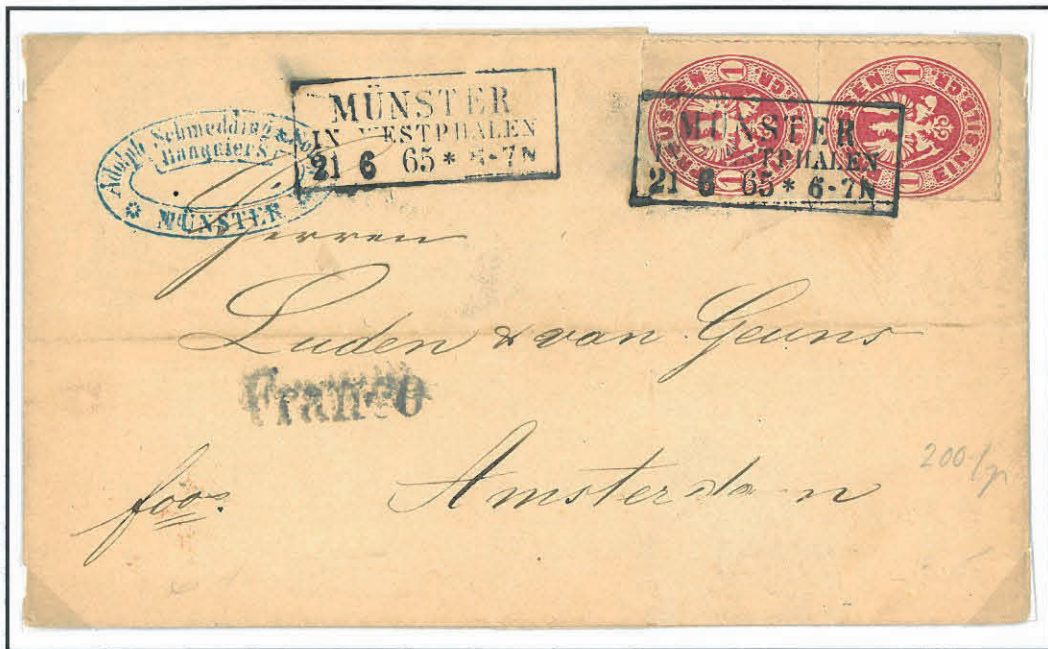 Adolph Schmedding &
Banquiers
MÜNSTER
MÜNSTER
IN WESTPHALEN
21 6 65 * 6-7N
MÜNSTER
IN WESTPHALEN
21 6 65 * 6-7N
PREUSSEN 1 SILB.GR. 1
PREUSSEN 1 SILB.GR. 1
Herren
Luden & van Geuns
Franco
fco.
Amsterdam
200.-